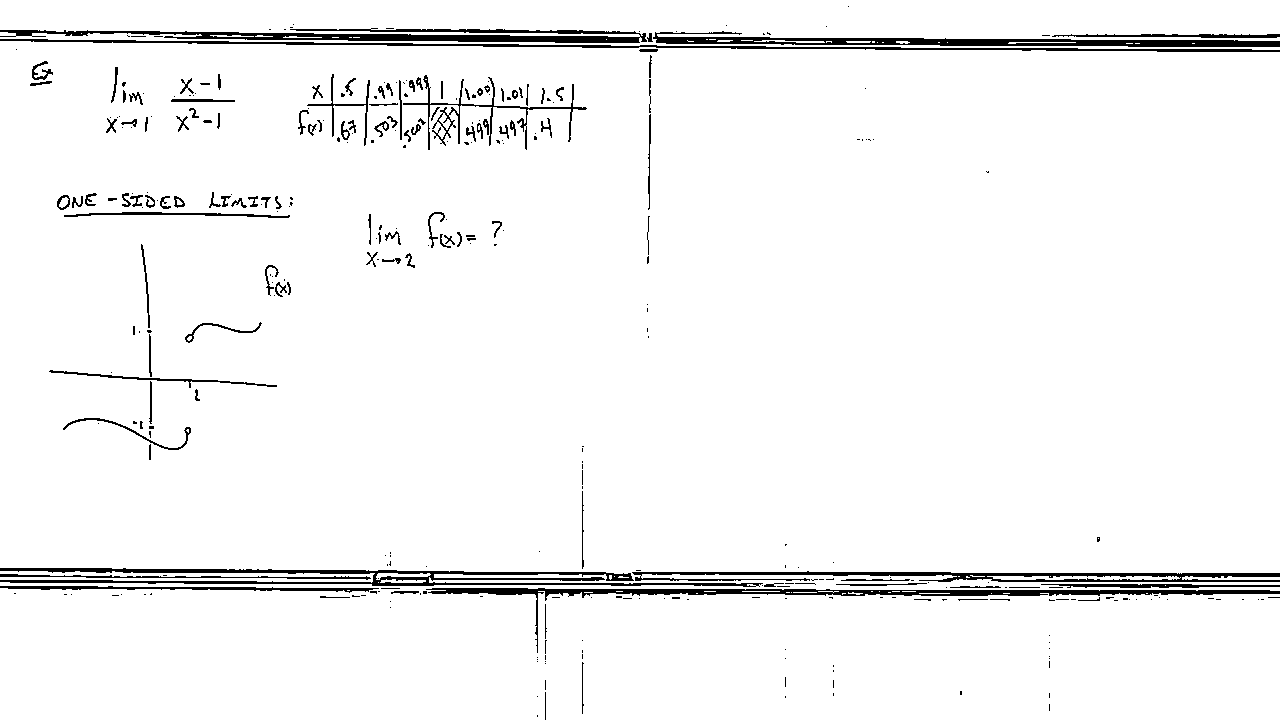 Ex
lim x→1 x-1 / x²-1
x | .5 | .99 | .999 | 1 | 1.001 | 1.01 | 1.5
f(x) | .67 | .503 | .5003 | | .499 | .497 | .4
ONE-SIDED LIMITS:
lim x→2 f(x) = ?
f(x)
1
2
-1